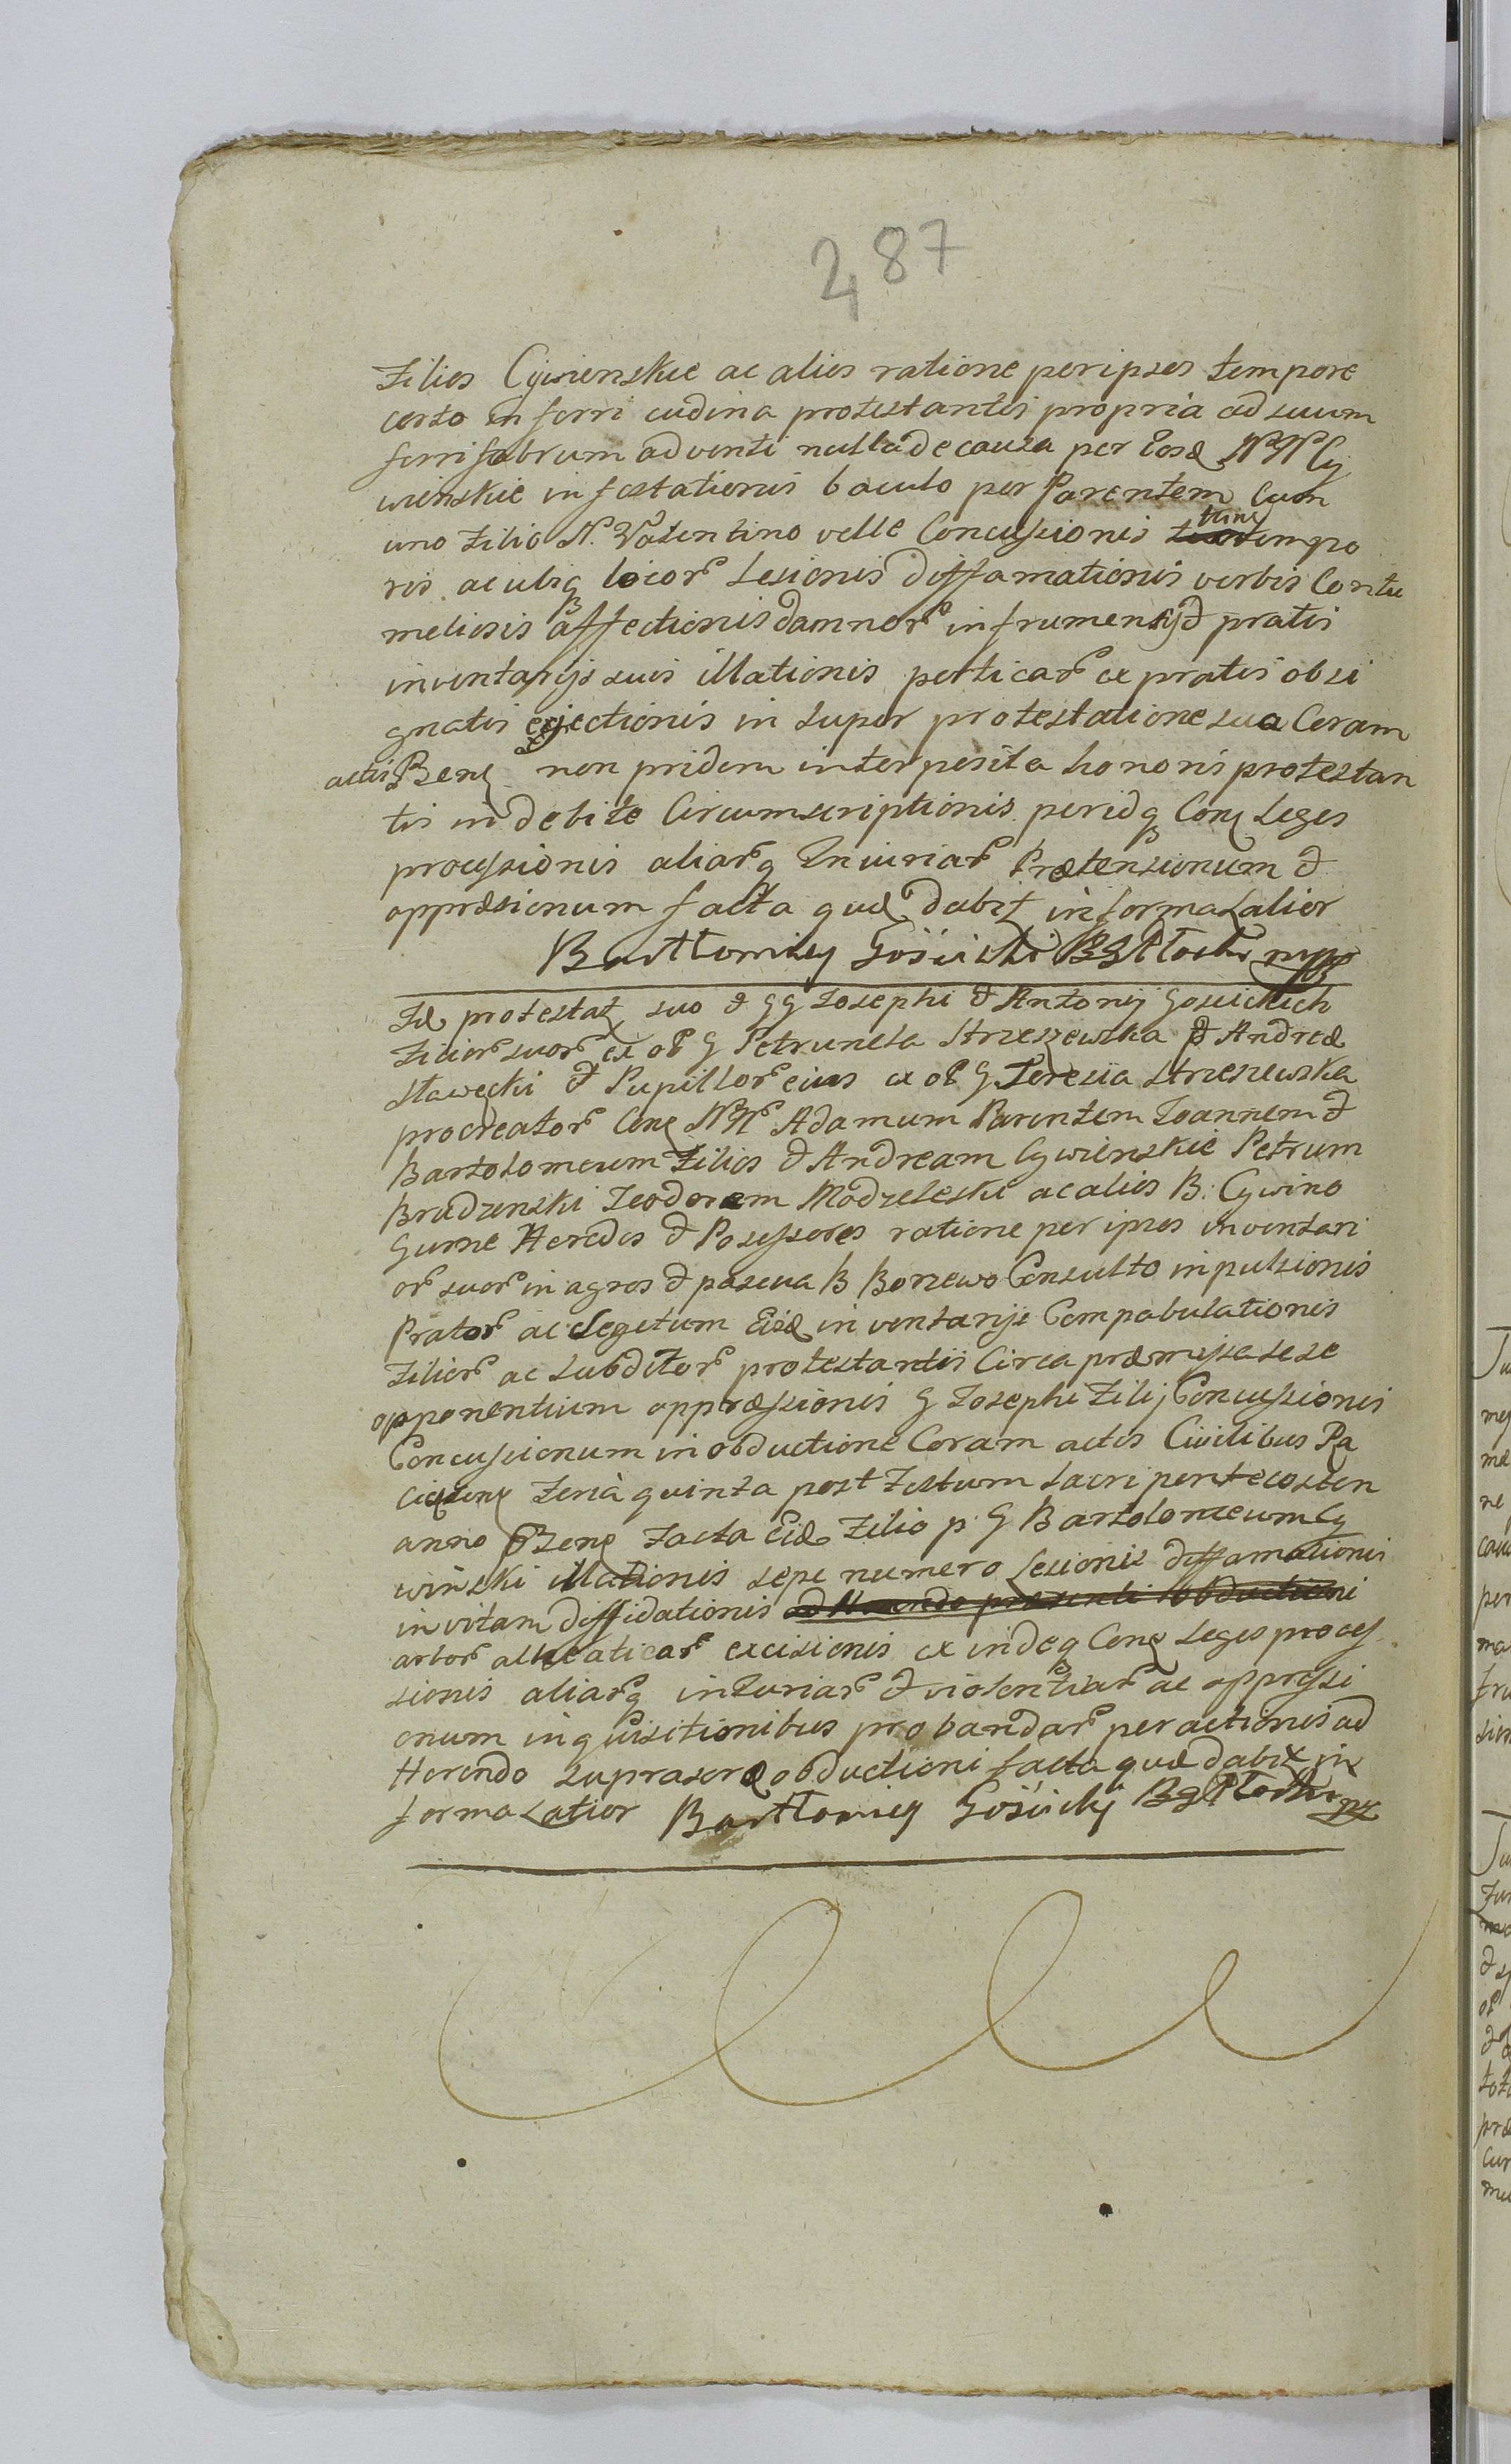 287
Filios Cywienskie ac alios ratione per ipsos tempore
certo in ferri cudina protestantis propria ad suum
ferrifabrum adventi nulla de causa per Eosd NN Cy
wienskie infestationis baculo per Parentem Cum
uno Filio N. Valentino velle Concussionis tunc tempo
ris ac ubiq locor Lesionis diffamationis verbis Contu
meliosis affectionis damnor in frumentis & pratis
inventarijs suis illationis perticar ex pratis obsi
gnatis ejectionis in super protestatione sua Coram
actis Bene non pridem interposita honoris protestan
tis indebite Circumscriptionis peridq Cone Leges
processionis aliarq Iniuriar Prætensionum &
oppræsionum facta quæ dabit informa Latior
Bartłomiey Gościcki BGPłocki mpp
Id protestat suo & GG Iosephi & Antonij Gosicklich
Filior suor ex ol G Petrunela Strzeszewska & Andreæ
Sławęcki & Pupillor eius ex ol G Teresia Strzeszewska
procreator Cone NN Adamum Parentem Ioannem &
Bartolomeum Filios & Andream Cywienskie Petrum
Brudzenski Teodorem Modzeleski ac alios B. Cywino
Gurne Heredes & Possessores ratione per ipsos inventari
or suor in agros & pascua B Borzewo Consulto inpulsionis
Prator ac Segetum Eisd inventarijs Compabulationis
Filior ac Subditor protestantis Circa præmissa sese
opponentium oppræssionis G Iosephi Filij Concussionis
Concussionum in obductione Coram actis Civilibus Pa
Feria quinta post Festum Sacri pentecosten
anno Facta Eid Filio p G Bartolomeum Cy
winski illationis sepe numero Lesionis diffamationis
in vitam diffidationis
arbor excisionis ex indeq Cone Leges proces
sionis aliarq iniuriar & violentiar ac oppressi
onum inquisitionibus probandar peractionis ad
Herendo suprascr obductioni facta quæ dabit in
forma Latior Bartłomiey Gościcky BgPłocki mp